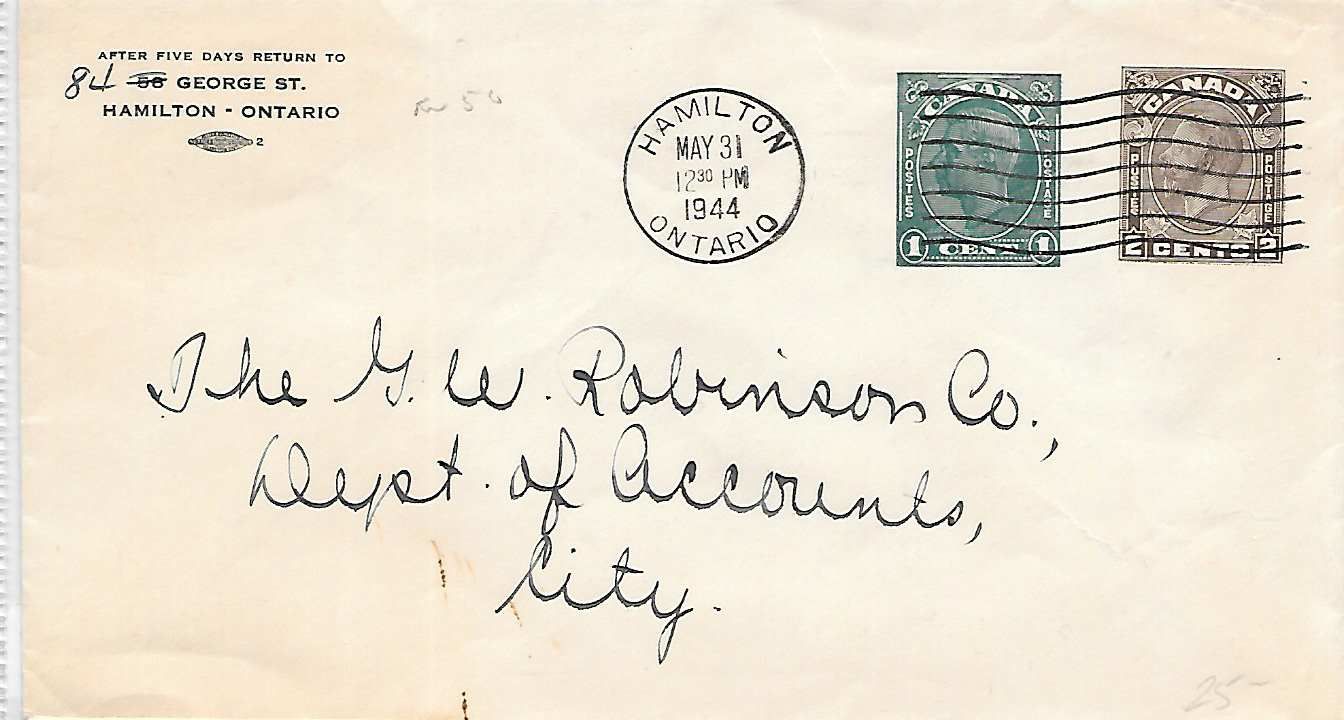 AFTER FIVE DAYS RETURN TO
84 58 GEORGE ST.
HAMILTON - ONTARIO
2
HAMILTON
MAY 31
12 30 PM
1944
ONTARIO
CANADA
POSTES POSTAGE
1 CENT 1
CANADA
POSTES POSTAGE
2 CENTS 2
The G. W. Robinson Co.,
Dept. of Accounts,
City.
25-